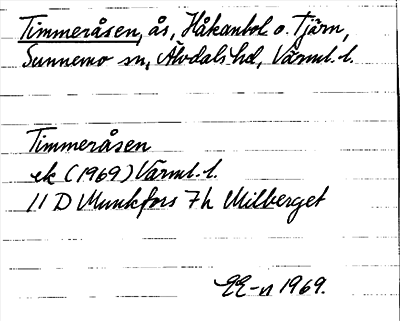 Timmeråsen, ås, Håkanbol o. Tjärn,
Sunnemo sn, Älvdals hd, Värml. l.
Timmeråsen
ek (1969) Värml. l.
11 D Munkfors 7h Milberget
EE-n 1969.